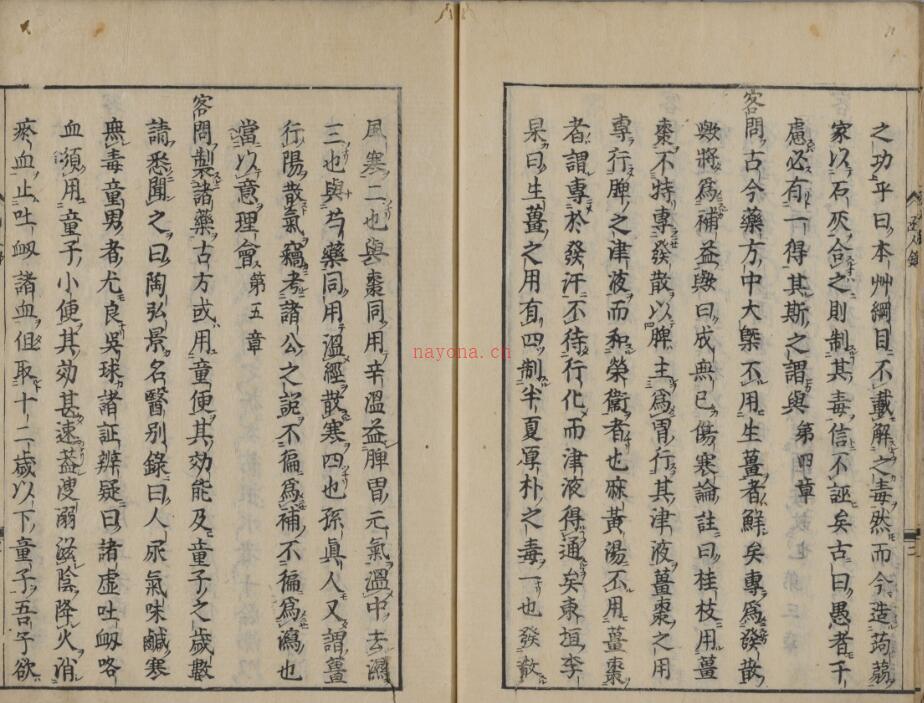 之功乎曰本艸綱目不載解之毒然而今造蒟蒻
家以石灰合之則制其毒信不誣矣古曰愚者千
慮必有一得其斯之謂與 第四章
客問古今藥方中大槩不用生薑者鮮矣專爲發散
歟將爲補益歟曰成無已傷寒論註曰桂枝用薑
棗不特專發散以脾主爲胃行其津液薑棗之用
專行脾之津液而和榮衞者也麻黃湯不用薑棗
者謂專於發汗不待行化而津液得通矣東垣李
杲曰生薑之用有四制半夏厚朴之毒一也發散
風寒二也與棗同用辛溫益脾胃元氣溫中去濕
三也與芍藥同用溫經散寒四也孫眞人又謂薑
行陽散氣竊考諸公之說不徧爲補不徧爲瀉也
當以意理會 第五章
客問製諸藥古方或用童便其効能及童子之歲數
請悉聞之曰陶弘景名醫別錄曰人尿氣味鹹寒
無毒童男者尤良吳球諸証辨疑曰諸虛吐衂咯
血須用童子小便其効甚速蓋溲溺滋陰降火消
瘀血止吐衂諸血但取十二歲以下童子吾子欲
nayona.cn